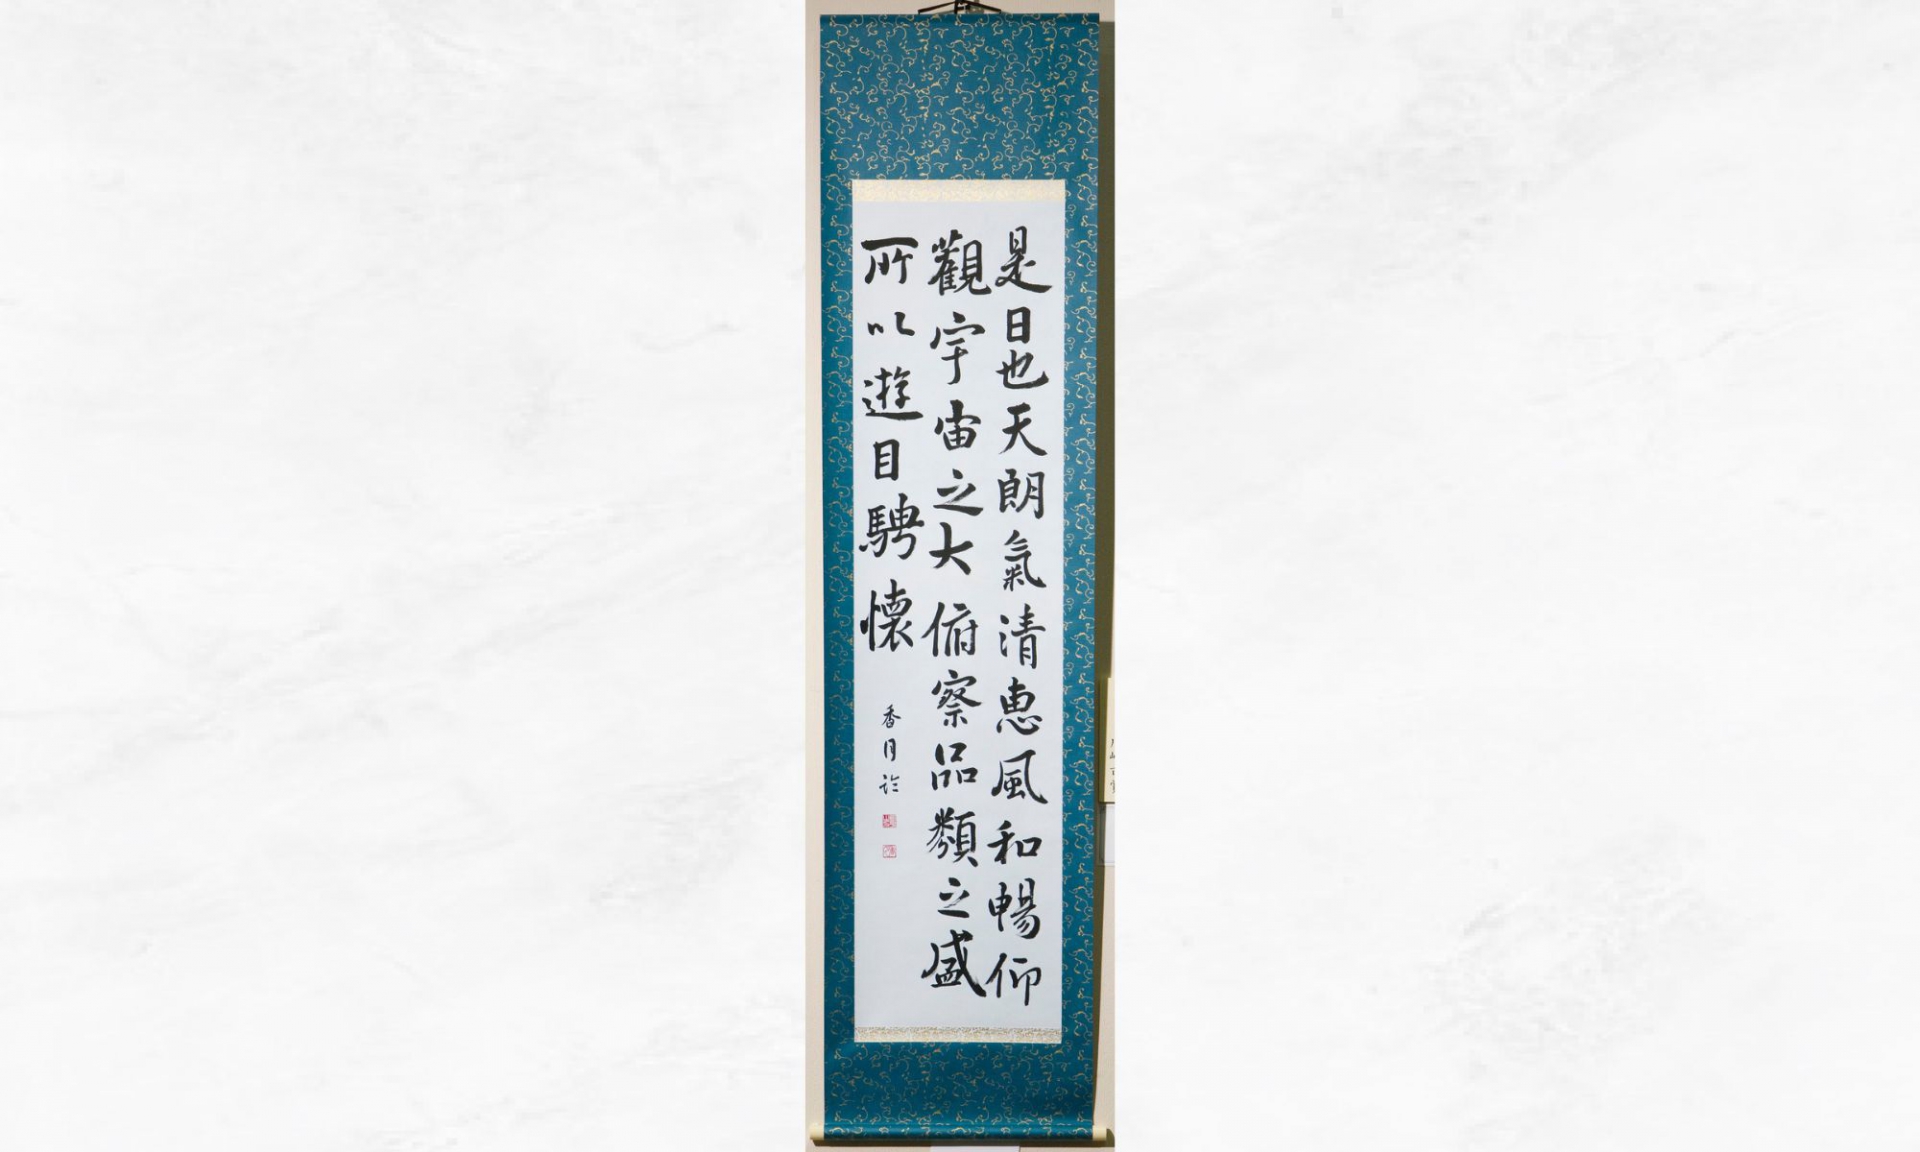 是日也天朗氣清恵風和暢仰
觀宇宙之大俯察品類之盛
所以遊目騁懐
香月